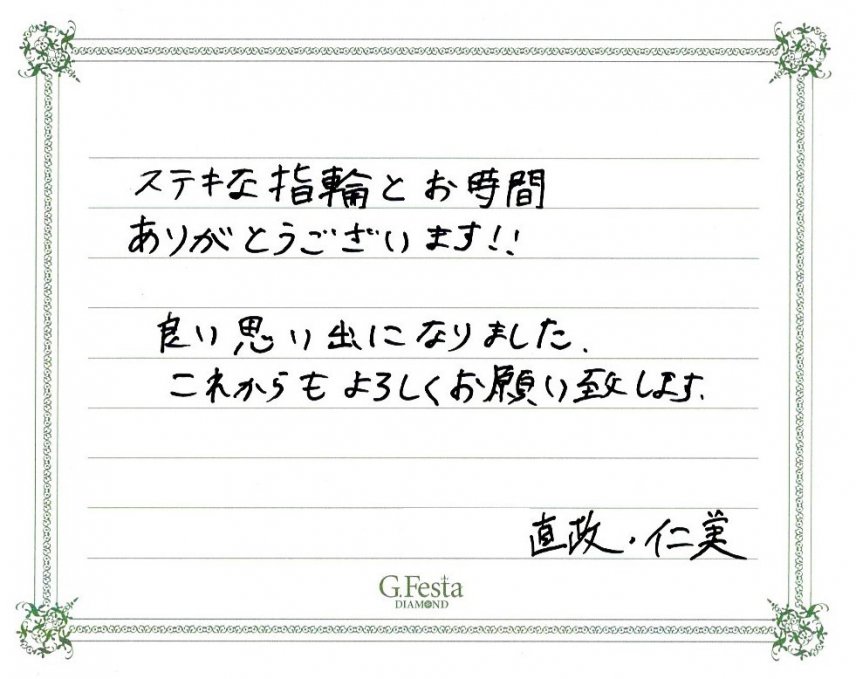 ステキな指輪とお時間
ありがとうございます!!
良い思い出になりました.
これからもよろしくお願い致します.
直政・仁美
G.Festa
DIAMOND